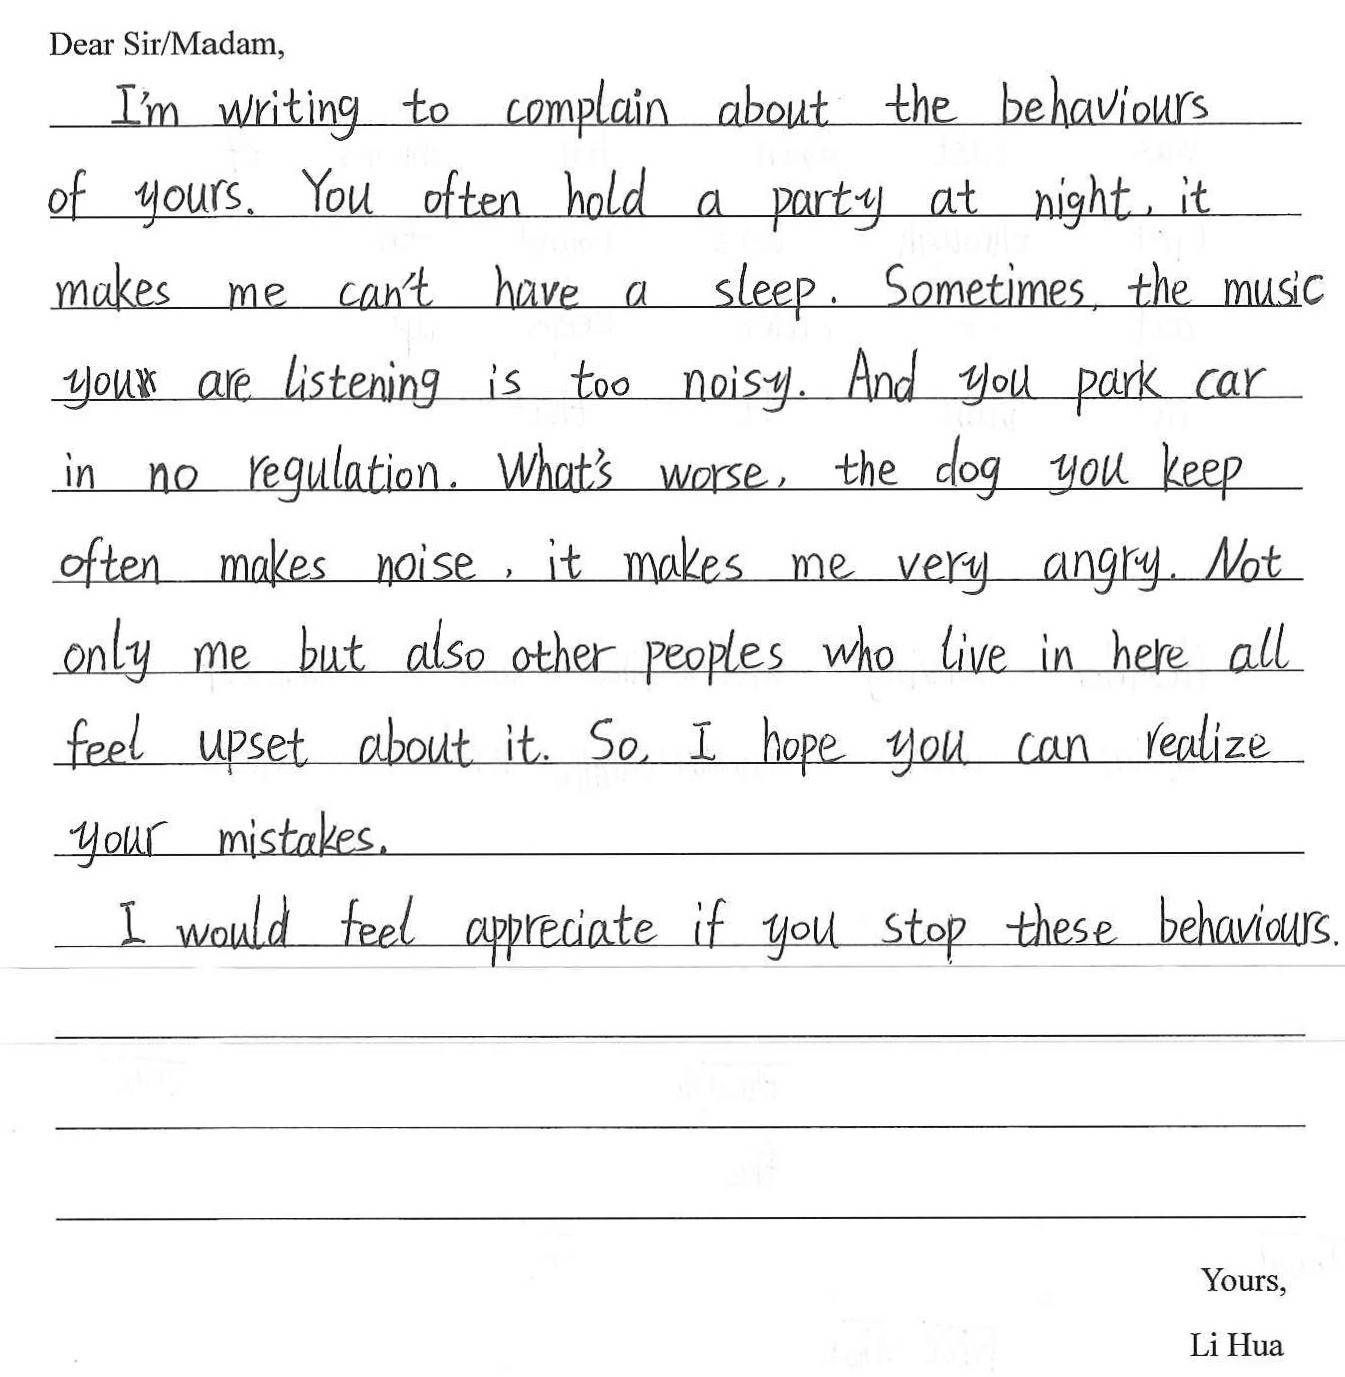 Dear Sir/Madam,
I'm writing to complain about the behaviours
of yours. You often hold a party at night, it
makes me can't have a sleep. Sometimes, the music
you are listening is too noisy. And you park car
in no regulation. What's worse, the dog you keep
often makes noise, it makes me very angry. Not
only me but also other peoples who live in here all
feel upset about it. So, I hope you can realize
your mistakes.
I would feel appreciate if you stop these behaviours.
Yours,
Li Hua